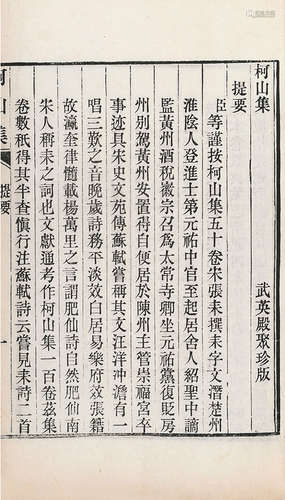 柯山集
武英殿聚珍版
提要
臣等謹按柯山集五十卷宋張耒撰耒字文潛楚州
淮陰人登進士第元祐中官至起居舍人紹聖中謫
監黃州酒稅徽宗召為太常寺卿坐元祐黨復貶房
州別駕黃州安置尋自便居於陳州主管崇福宮卒
事迹具宋史文苑傳蘇軾嘗稱其文汪洋沖澹有一
唱三歎之音晚歲詩務平淡效白居易樂府效張籍
故瀛奎律髓載楊萬里之言謂肥仙詩自然肥仙南
宋人稱耒之詞也文獻通考作柯山集一百卷茲集
卷數秪得其半查愼行注蘇軾詩云嘗見耒詩二首
柯山集
提要
一